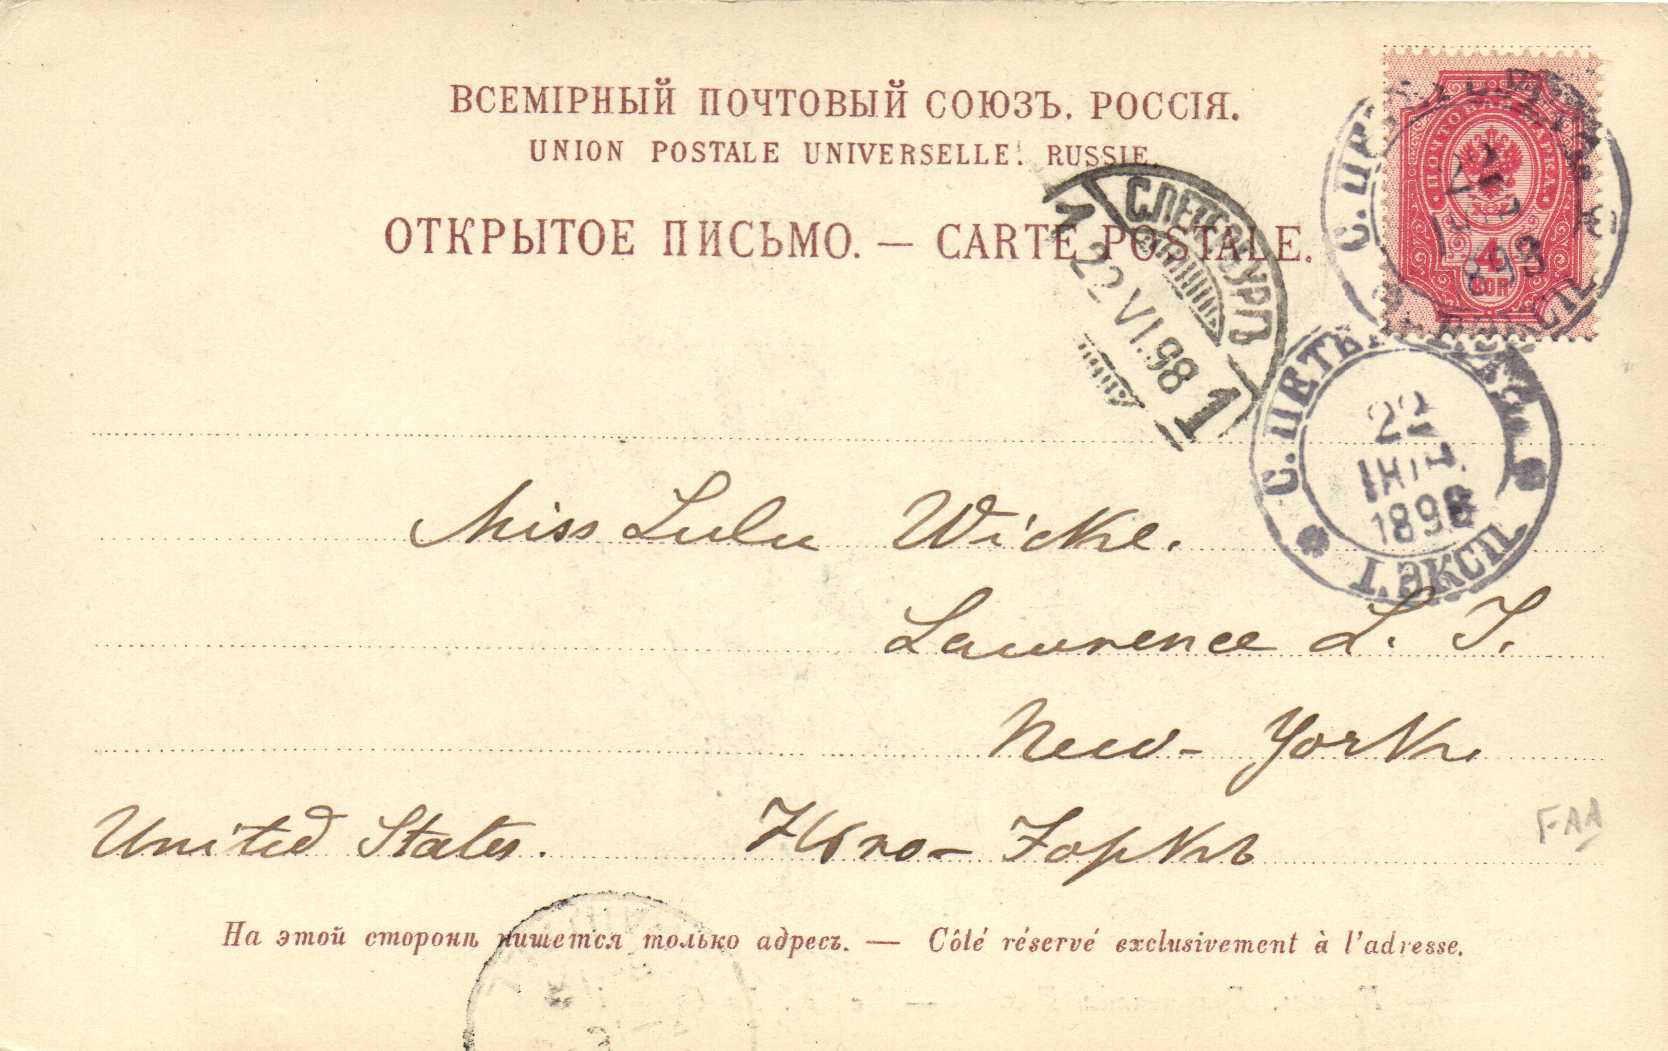 ВСЕМІРНЫЙ ПОЧТОВЫЙ СОЮЗЪ. РОССІЯ.
UNION POSTALE UNIVERSELLE. RUSSIE.
ОТКРЫТОЕ ПИСЬМО. — CARTE POSTALE.
ПОЧТОВАЯ МАРКА
4
КОП
С.ПЕТЕРБУРГЪ
1 22 VI.98 1
С.ПЕТЕРБ
22
ІЮН.
1898
1.ЭКСП
Miss Lulu Wicke.
Lawrence L. I.
New-York.
United States. Нью-Іоркъ
FAA
На этой сторонѣ пишется только адресъ. — Côté réservé exclusivement à l'adresse.